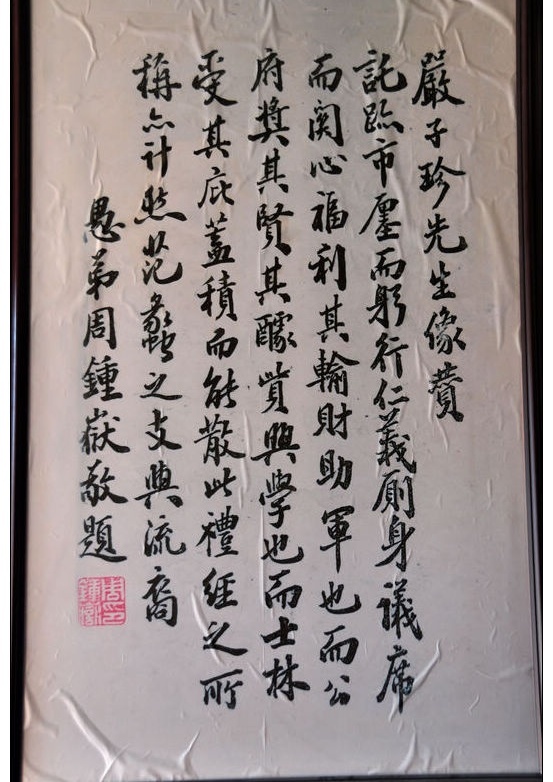 嚴子珍先生像贊
託跡市廛而躬行仁義厠身議席
而関心福利其輸財助軍也而公
府獎其賢其醵貲興學也而士林
受其庇蓋積而能散此禮經之所
稱亦計然范蠡之支與流裔
愚弟周鍾嶽敬題
周鍾嶽印